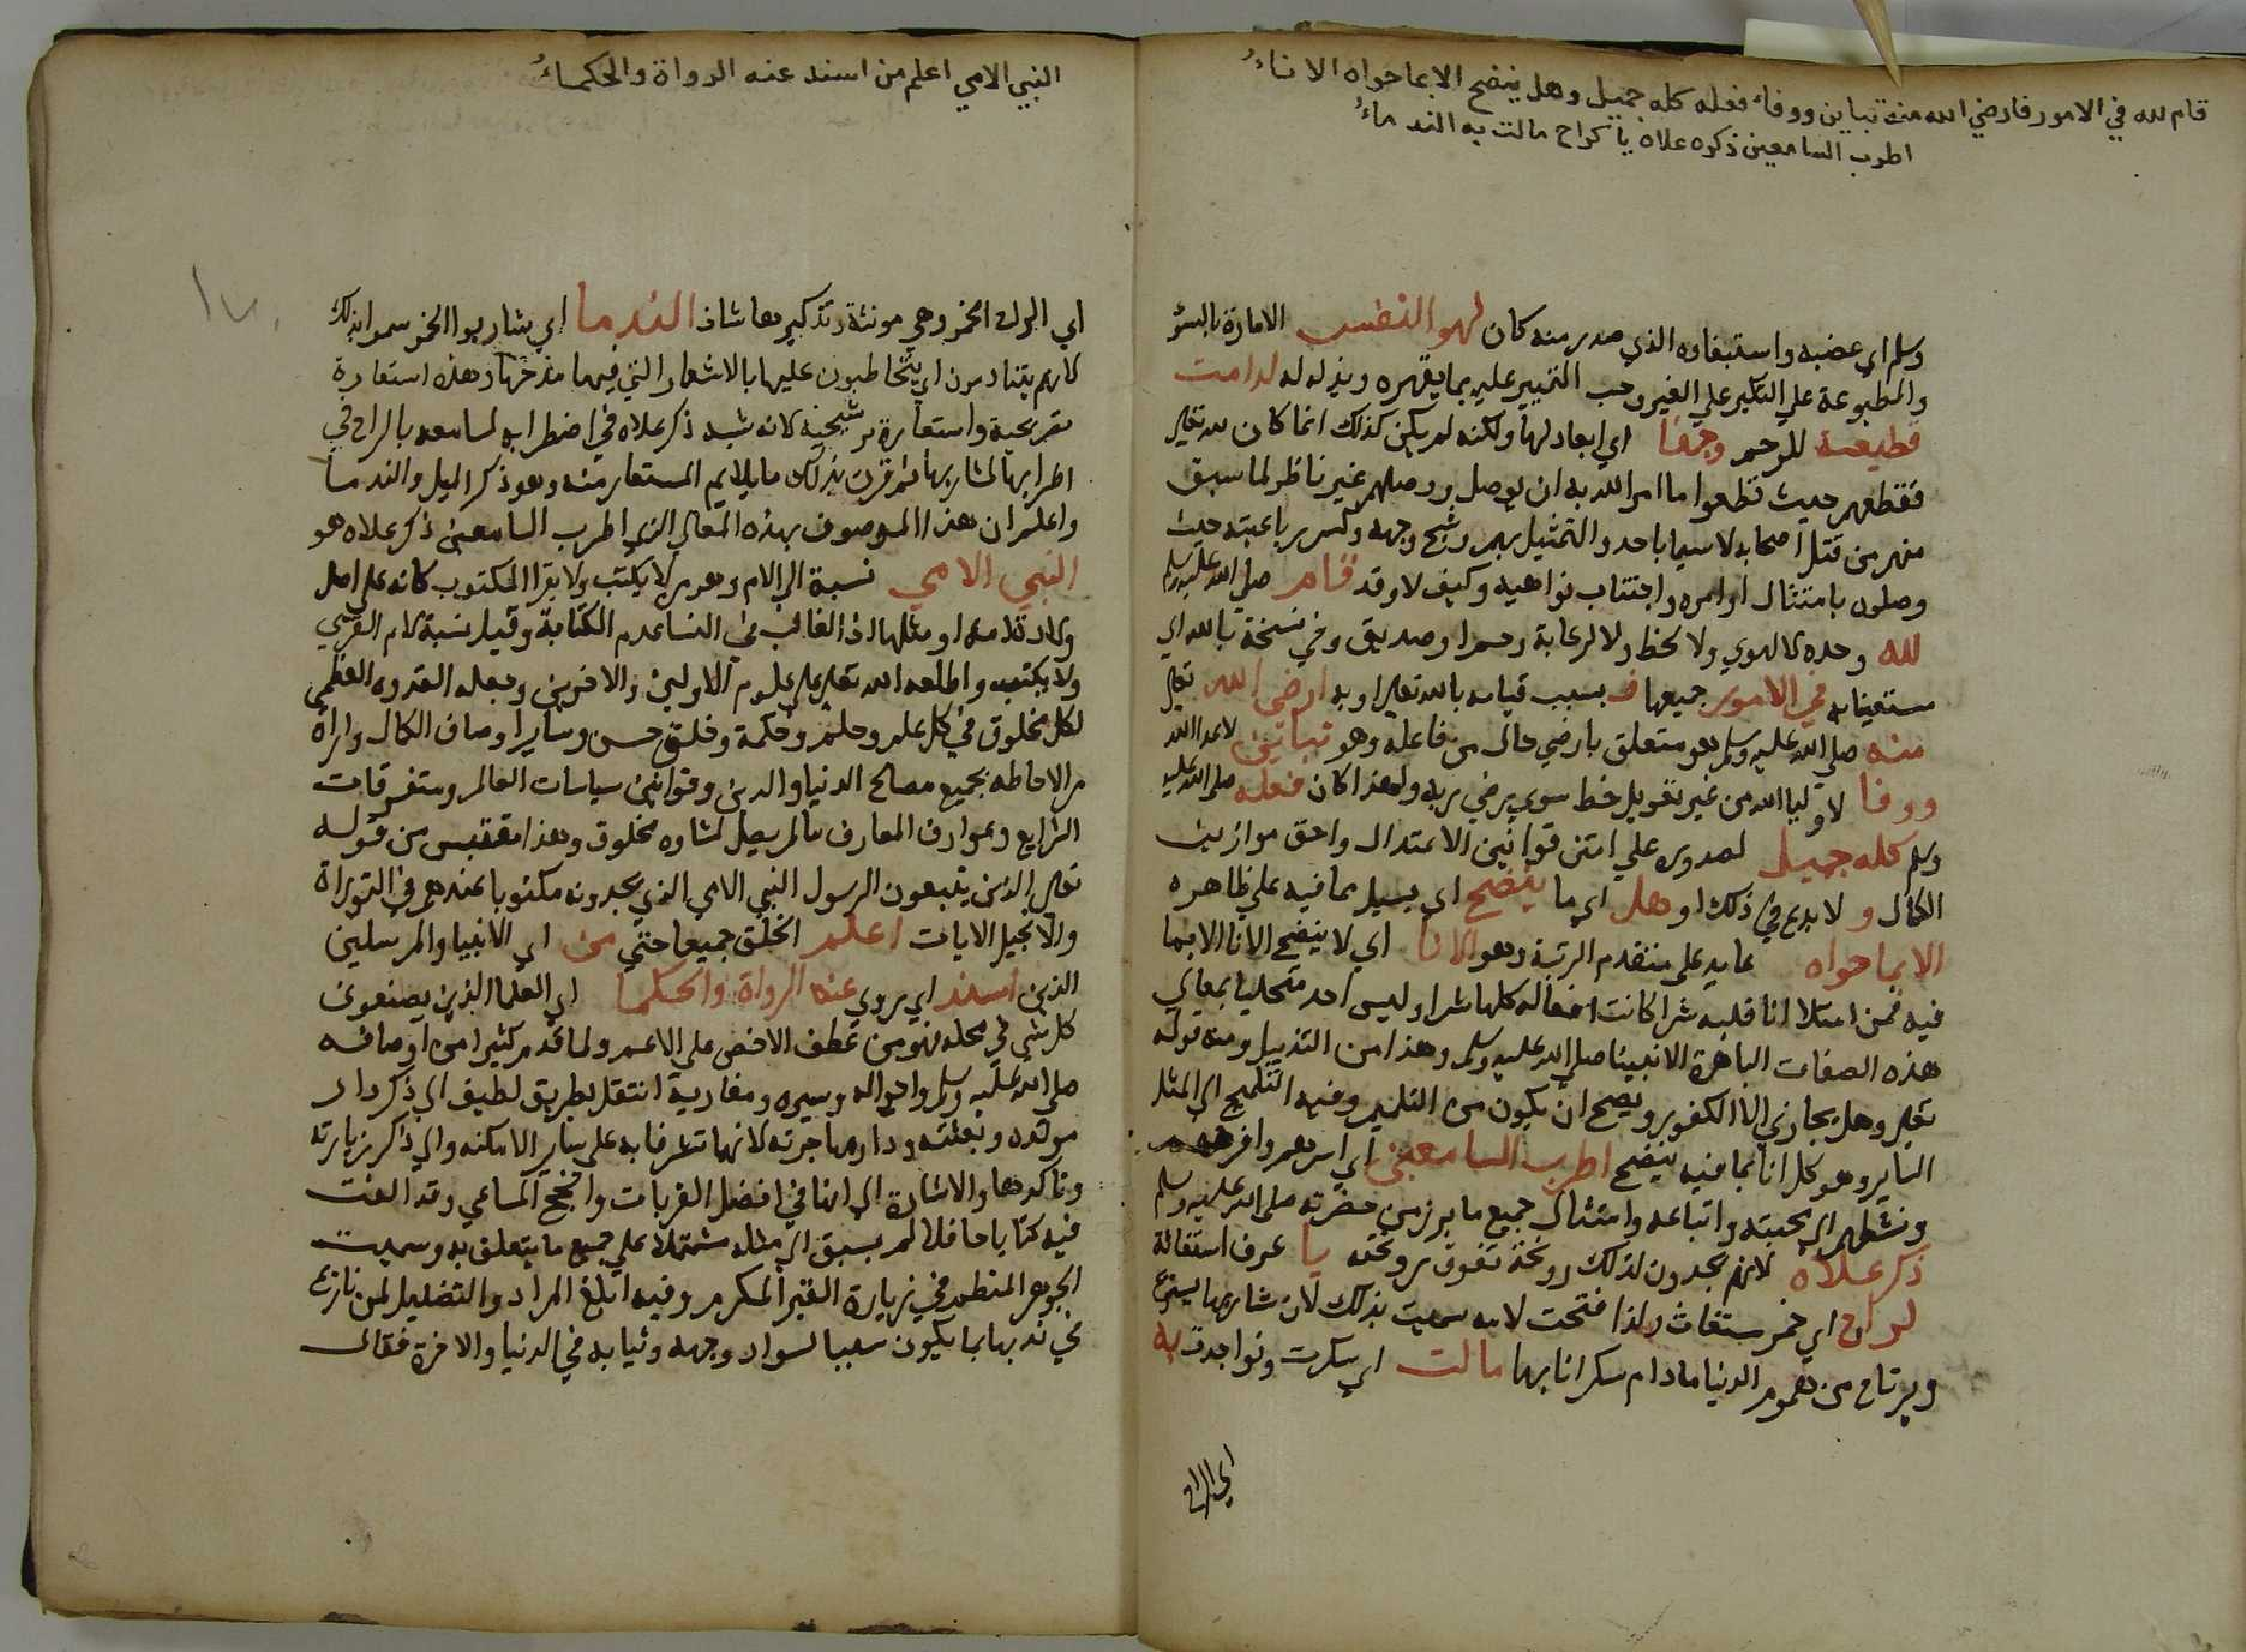 قام لله في الامور فارضي الله منه تباين ووفاء فعله كله جميل وهل ينضح الا بما حواه الاناءُ
اطرب السامعين ذكره علاه يا كراح مالت به الندماءُ
وسلم اي عضبه واستبقاوه الذي صدر منه كان لهو النفس الامارة بالسؤ
والمطبوعة علي التكبر علي الغير وحب التمييز عليه بما يقهره ويذله له لدامت
قطيعة للرحم وجفا اي ابعاد لها ولكنه لم يكن كذلك انما كان لله تعلي
فقطعهم حيث قطعوا ما امر الله به ان يوصل ووصلهم غير ناظر لما سبق
منهم من قتل اصحابه لا سيما باحد والتمثيل بهم وشج وجهه وكسر رباعيته حيث
وصلون بامتثال اوامره واجتناب نواهيه وكيف لا وقد قام صلي الله عليه وسلم
لله وحده لا لهوي ولا لحظ ولا لرعاية وصديق وفي نسخة بالله اي
مستعينا به في الامور جميعها ف بسبب قيامه بالله تعلي او به ارضي الله تعلي
منه صلي الله عليه وسلم هو متعلق بارضي حال من فاعله وهو تباين لاعدا الله
ووفا لاوليا الله من غير تقويل خط سوي يرضي ربه ولهذا كان فعله صلي الله عليه
وسلم كله جميل لصدوره علي اتقن قوانين الاعتدال واحق موازين
الكمال و لا بدع في ذلك او هل اي ما ينضح اي يسيل مما فيه علي ظاهره
الا بما حواه عايد علي متقدم الرتبة وهو الانا اي لا ينضح الانا الا بما
فيه فمن امتلا انا قلبه شرا كانت افعاله كلها شرا وليس احد متحليا بمعالي
هذه الصفات الباهرة الا نبينا صلي الله عليه وسلم وهذا من التذييل ومنه قوله
تعلي وهل يجازي الا الكفور ويصح ان يكون من التلميح وفيه التلميح الي المثل
الساير وهو كل انا بما فيه ينضح اطرب السامعين اي اسرهم وافرحهم
ونشطهم الي محبته واتباعه وامتثال جميع ما برز من حضرته صلي الله عليه وسلم
ذكر علاه لانهم يجدون لذلك رونحة تفوق يا حرف استغاثة
لراح اي خمر مستغاث ولذا فتحت لامه سميت بذلك لان شاربها يستريح
ويرتاح من هموم الدنيا ما دام سكرانا بها مالت اي سكرت وتواجدت به
اي الراح
النبي الامي اعلم من اسند عنه الرواة والحكماءُ
اي الراح الخمر وهي مونثة وتذكيرها شاذ الندما اي شاربوا الخمر سموا بذلك
لانهم يتنادمون اي يتخاطبون عليها بالاشعار التي فيها مدحها وهذه استعارة
تصريحية واستعارة ترشيحية لانه شبه ذكر علاه في اضطرابه لسامعه بالراح في
اطرابها لشاربها ثم قرن بذلك ما يلايم المستعار منه وهو ذكر الميل والندما
واعلم ان هذا الموصوف بهذه المعالي الذي اطرب السامعين ذكر علاه هو
النبي الامي نسبة الي الام وهو من لا يكتب ولا يقرا المكتوب كانه علي اصل
ولادة امه او مثلها اذ الغالب في النسا عدم الكتابة وقيل نسبة لام القري
ولا يكتب واطلعه الله تعلي علي علوم الاولين والاخرين وجعله القدوة العظمي
لكل مخلوق في كل علم وحلم وحكمة وخلق حسن وساير اوصاف الكمال واراه
من الاحاطه بجميع مصالح الدنيا والدين وقوانين سياسات العالم ومتفرقات
الشرايع وعوارف المعارف ما لم يصل لشاوه مخلوق وهذا مقتبس من قوله
تعلي الذين يتبعون الرسول النبي الامي الذي يجدونه مكتوبا عندهم في التوراة
والانجيل الايات اعلم الخلق جميعا حتي من اي الانبيا والمرسلين
الذين اسند اي يروي عنه الرواة والحكما اي العلما الذين يصنعون
كل شي في محله فهو من عطف الاخص علي الاعم ولما قدم كثيرا من اوصافه
صلي الله عليه وسلم واحواله وسيره ومغازيه انتقل بطريق لطيف الي ذكر دار
مولده وبعثته ودار مهاجرته لانهما تشرفا به علي ساير الامكنه والي ذكر زيارته
وتاكدها والاشارة الي انها في افضل القربات وانجح المساعي وقد الفت
فيه كتابا حافلا لم يسبق الي مثله مشتملا علي جميع ما يتعلق به وسميت
الجوهر المنظم في زيارة القبر المكرم وفيه ابلغ المراد والتضليل لمن نازع
في ندبها بما يكون سببا لسواد وجهه وثيابه في الدنيا والاخرة فقال